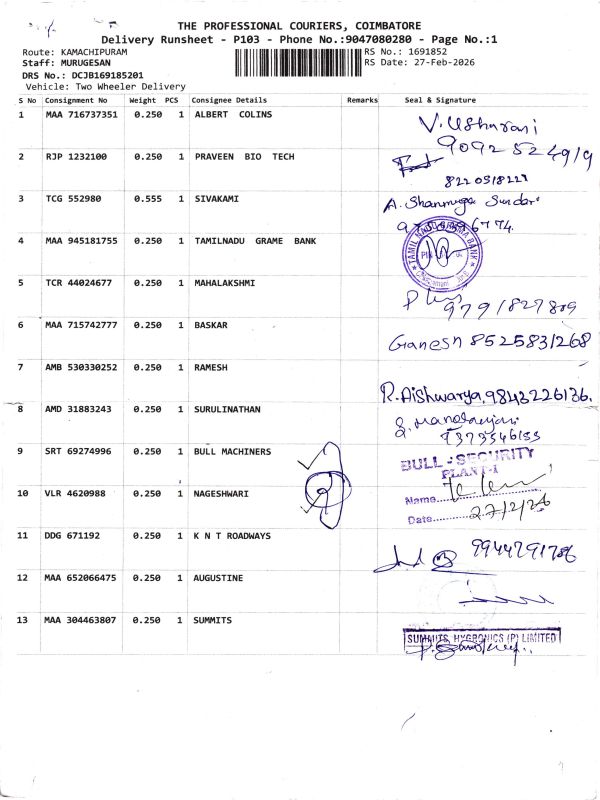 THE PROFESSIONAL COURIERS, COIMBATORE
Delivery Runsheet - P103 - Phone No.:9047080280 - Page No.:1
Route: KAMACHIPURAM
RS No.: 1691852
Staff: MURUGESAN
RS Date: 27-Feb-2026
DRS No.: DCJB169185201
Vehicle: Two Wheeler Delivery
S No Consignment No Weight PCS Consignee Details Remarks Seal & Signature
1 MAA 716737351 0.250 1 ALBERT COLINS V. Usharani
9092524919
2 RJP 1232100 0.250 1 PRAVEEN BIO TECH
3 TCG 552980 0.555 1 SIVAKAMI A. Shanmuga Sundar
4 MAA 945181755 0.250 1 TAMILNADU GRAME BANK
5 TCR 44024677 0.250 1 MAHALAKSHMI
9791827809
6 MAA 715742777 0.250 1 BASKAR Ganesh 8525831268
7 AMB 530330252 0.250 1 RAMESH R. Aishwarya, 9843226136.
8 AMD 31883243 0.250 1 SURULINATHAN
9373546133
9 SRT 69274996 0.250 1 BULL MACHINERS BULL - SECURITY
PLANT-I
10 VLR 4620988 0.250 1 NAGESHWARI Name
Date 27/2/26
11 DDG 671192 0.250 1 K N T ROADWAYS 9944791786
12 MAA 652066475 0.250 1 AUGUSTINE
13 MAA 304463807 0.250 1 SUMMITS SUMMITS HYGRONICS (P) LIMITED